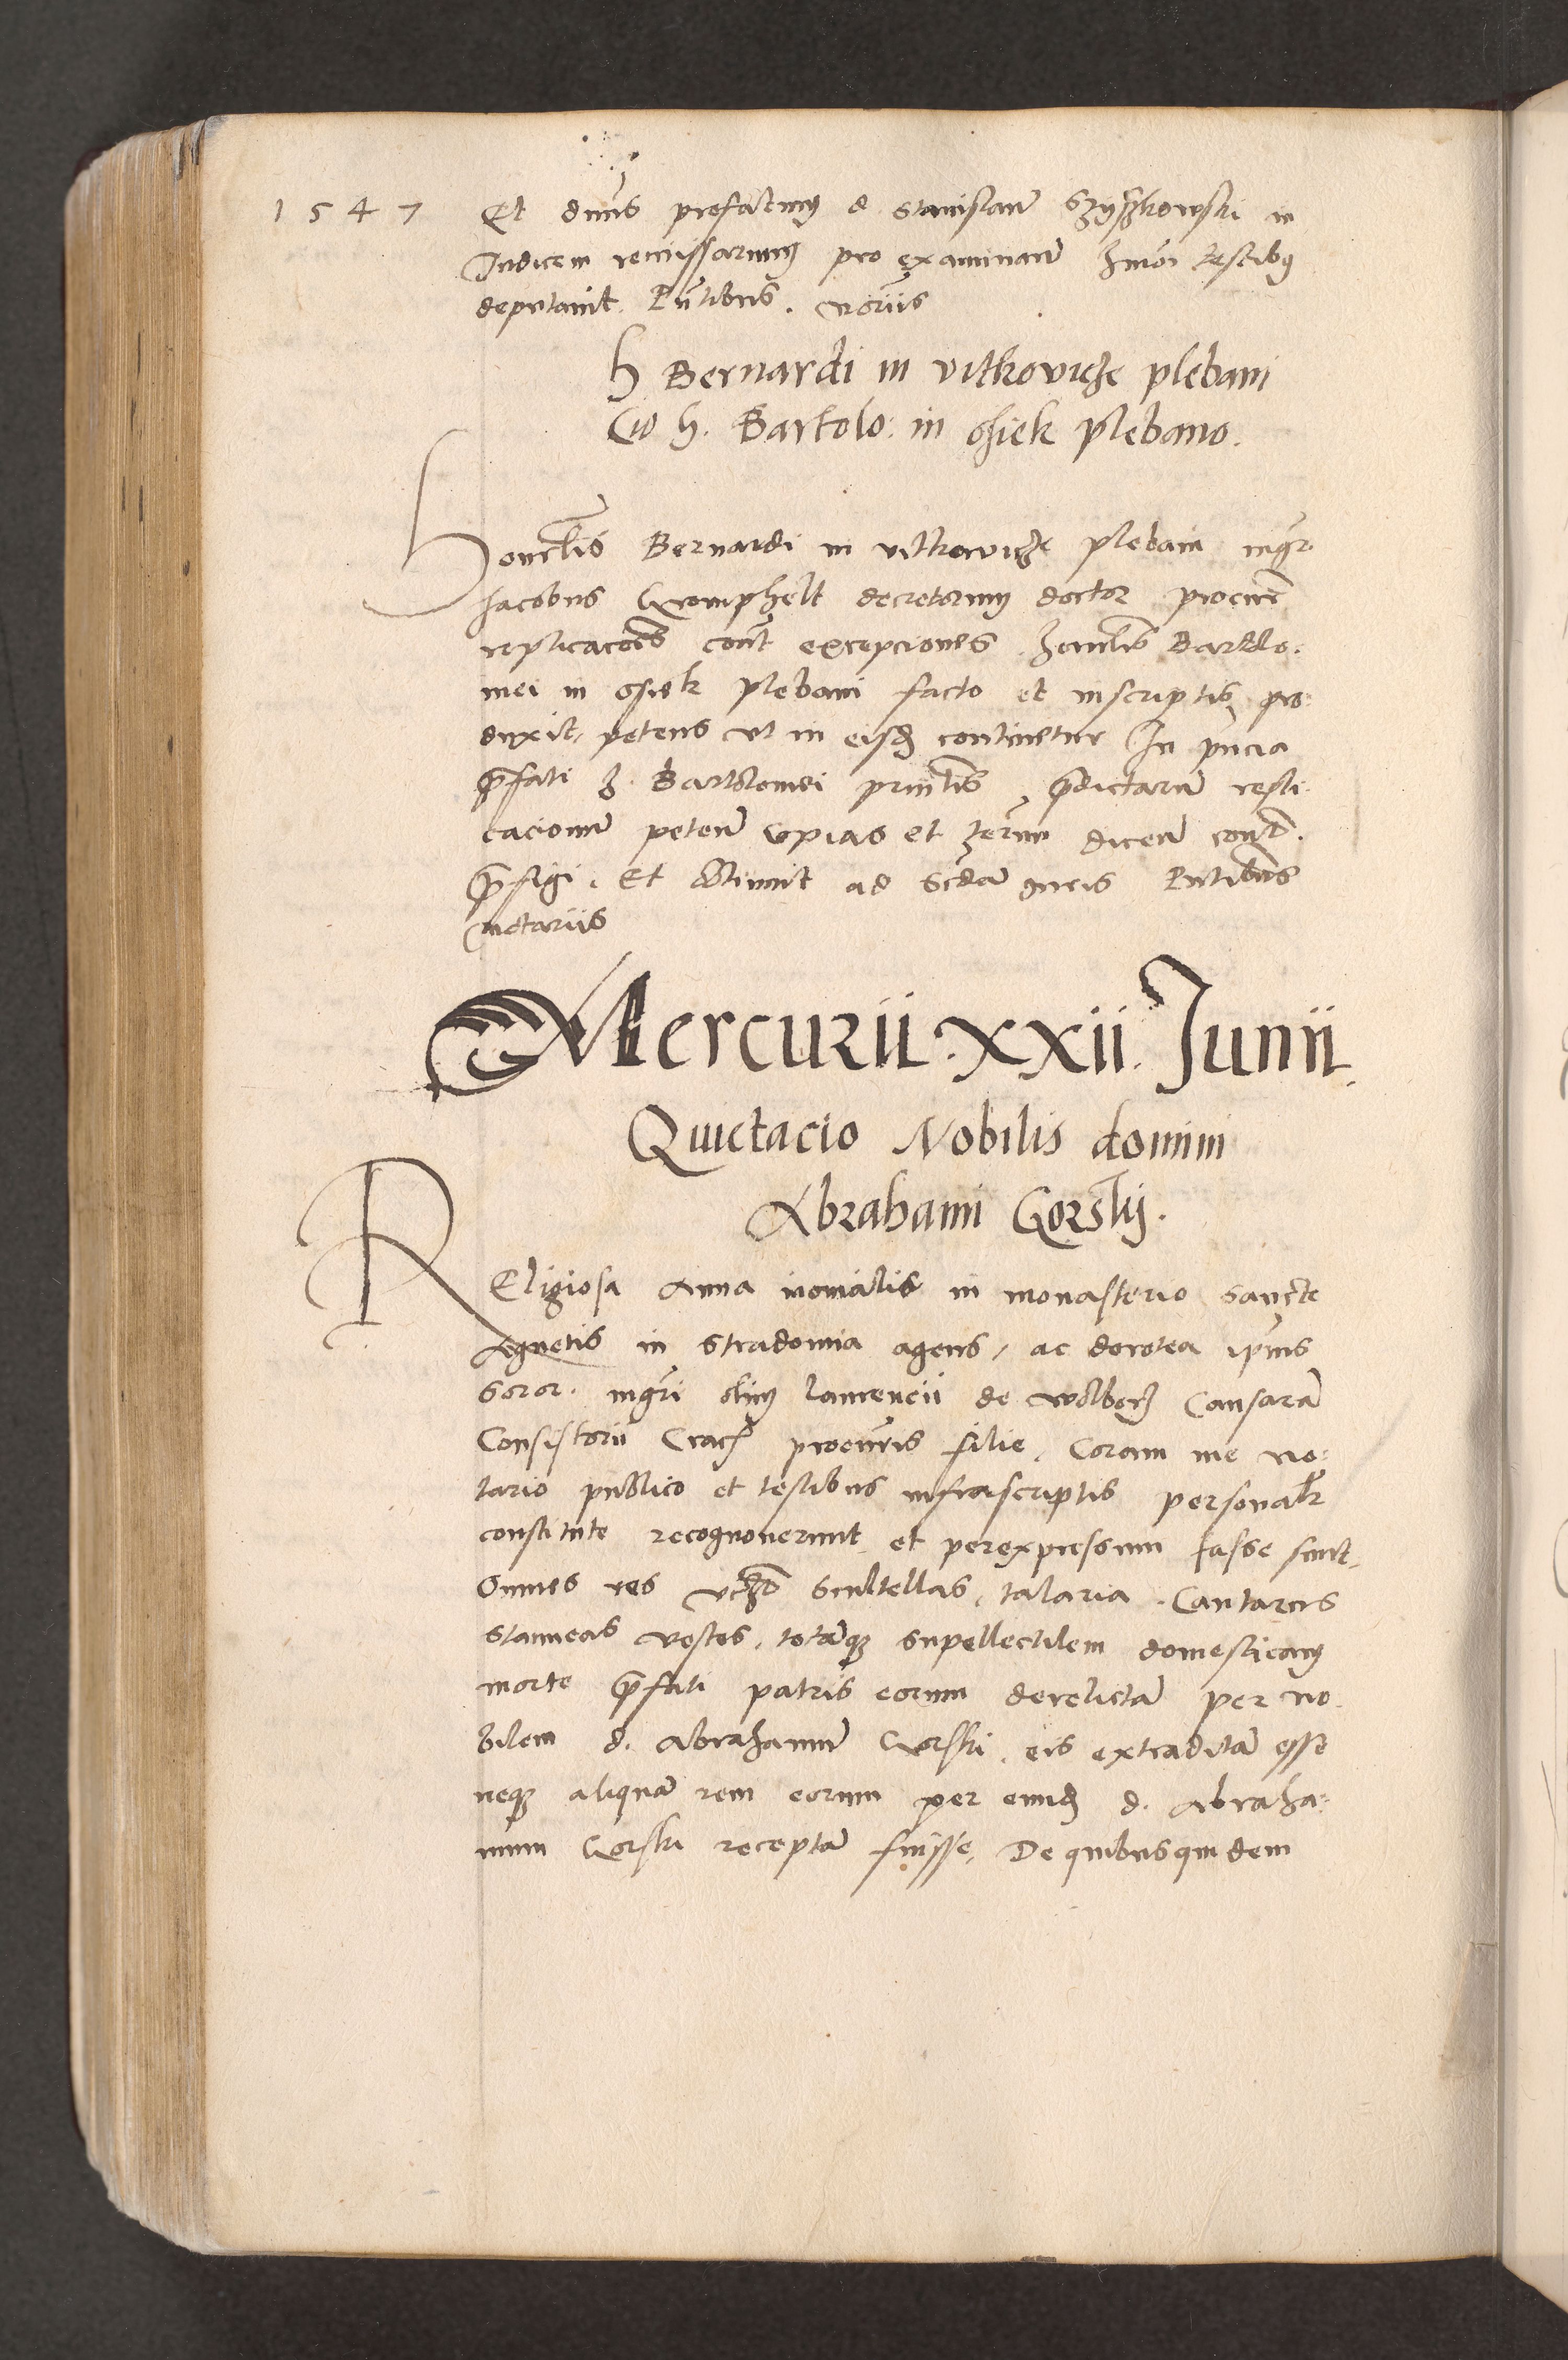 1547
Et dnus prefatimus d Stanislaum Szyszkowski in
Judicem remissarium pro examinan hmoi testibus
deputavit. Pntibus. notariis
h Bernardi in vitkovicze plebani
Cum h. Bartolo: in Osiek plebano.
Honorabilis Bernardi in vitkovicze plebani mgr
Jacobus Gromphelt decretorum doctor procur
replicacoes cont excepciones honorabilis Bartolo:
mei in Osiek plebani facto et inscriptis pro:
duxit, petens ut in eisdem continetur In pncia
prefati h. Bartolomei principalis, predictarum repli:
cacionum peten copias et terminum dicen cont.
prefigi. Et obtinuit ad scdam iuris Pntibus
notariis
Mercurii. xxii. Junii.
Quictacio Nobilis domini
Abrahami Gorskij.
Religiosa Anna monialis in monasterio sancte
Agnetis in Stradomia agens, ac dorotea ipius
soror. mgri olim laurencii de wolborz Causarum
Consistorii Crac procuris filie. Coram me no:
tario publico et testibus infrascriptis personalr
constitute recognoverunt et perexpressum fasse sunt,
Omnes res scultellas, talaria. Cantaros
stanneas vestes, totamque supellectilem domesticam
morte prefati patris eorum derelictam per no:
bilem d. Abrahamum Gorski, eis extraditam esse
neque aliquam rem eorum per eundem d. Abraha:
mum Gorski receptam fuisse, De quibusquidem